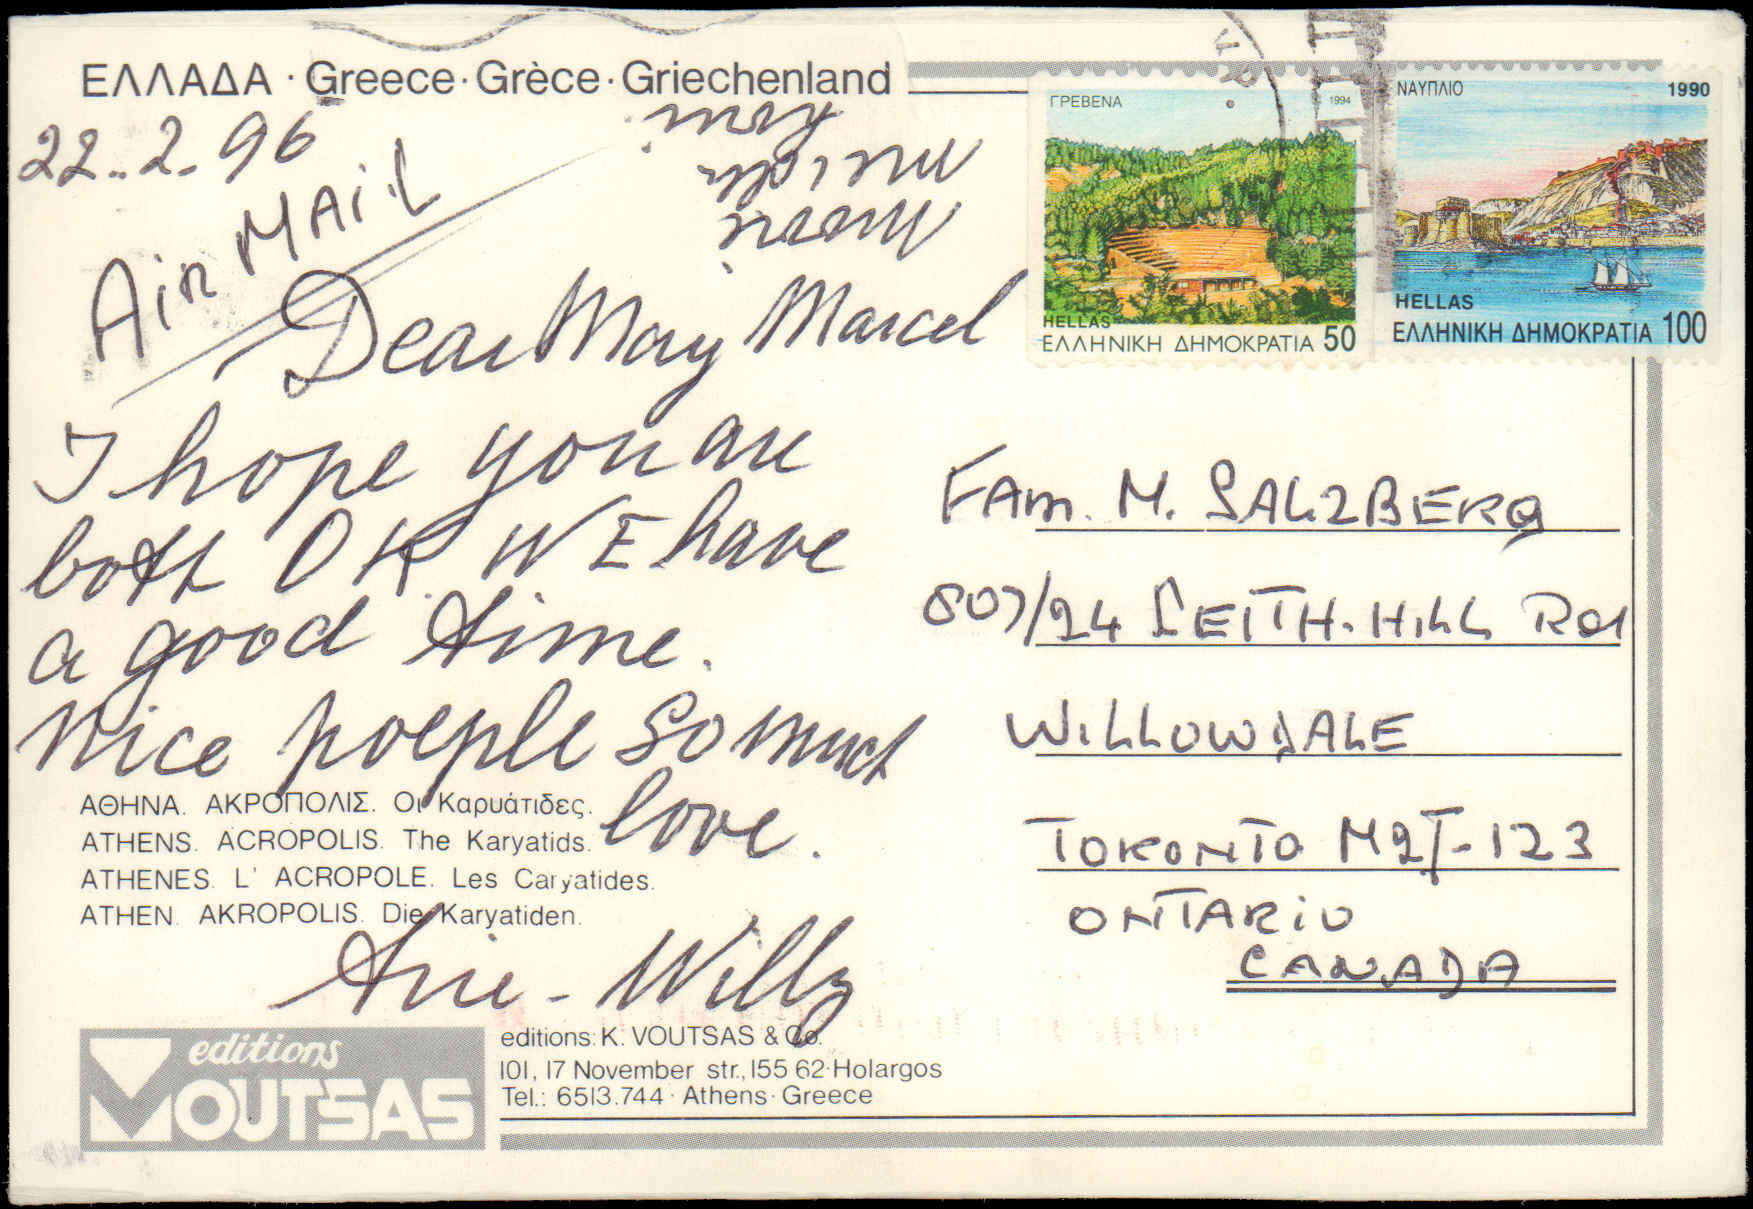 ΕΛΛΑΔΑ · Greece · Grèce · Griechenland
22.. 2. 96
AiR MAil
Dear May Marcel
I hope you are
both OK WE have
a good time.
Nice poeple so much
love.
ΑΘΗΝΑ. ΑΚΡΟΠΟΛΙΣ. Οι Καρυάτιδες.
ATHENS. ACROPOLIS. The Karyatids.
ATHENES. L' ACROPOLE. Les Caryatides.
ATHEN. AKROPOLIS. Die Karyatiden.
Willy
editions
VOUTSAS
editions: K. VOUTSAS & Co.
101, 17 November str., 155 62 · Holargos
Tel.: 6513.744 · Athens · Greece
ΓΡΕΒΕΝΑ 1994
HELLAS
ΕΛΛΗΝΙΚΗ ΔΗΜΟΚΡΑΤΙΑ 50
ΝΑΥΠΛΙΟ 1990
HELLAS
ΕΛΛΗΝΙΚΗ ΔΗΜΟΚΡΑΤΙΑ 100
FAM. M. SALZBERG
807/24 LEITH-HiLL Rd
WiLLOWDALE
TORONTO M2J-1Z3
ONTARiO
CANADA